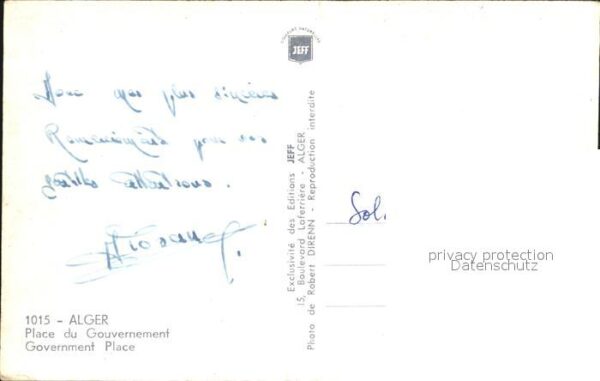 JEFF
plus sincères
Remerciements pour vos
gentilles attentions.
Sol.
1015 - ALGER
Place du Gouvernement
Government Place
Exclusivité des Editions JEFF
15, Boulevard Laferrière - ALGER
Photo de Robert DIRENN - Reproduction interdite
privacy protection
Datenschutz